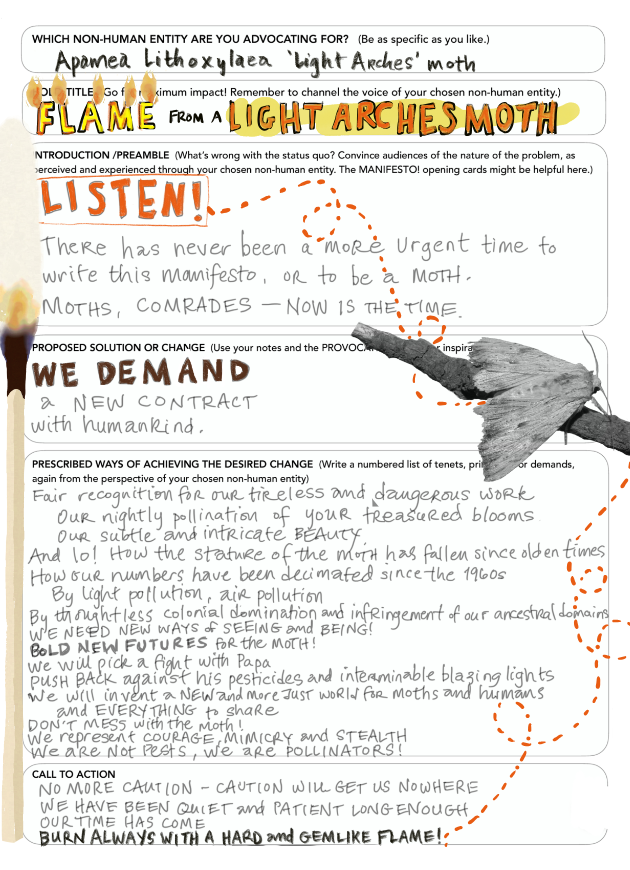 WHICH NON-HUMAN ENTITY ARE YOU ADVOCATING FOR? (Be as specific as you like.)
Apamea Lithoxylaea 'Light Arches' moth
TITLE Go for maximum impact! Remember to channel the voice of your chosen non-human entity.)
FLAME FROM A LIGHT ARCHES MOTH
INTRODUCTION /PREAMBLE (What's wrong with the status quo? Convince audiences of the nature of the problem, as
perceived and experienced through your chosen non-human entity. The MANIFESTO! opening cards might be helpful here.)
LISTEN!
There has never been a more urgent time to
write this manifesto, or to be a MOTH.
MOTHS, COMRADES – NOW IS THE TIME.
PROPOSED SOLUTION OR CHANGE (Use your notes and the PROVOCA r inspira
WE DEMAND
a NEW CONTRACT
with humankind.
PRESCRIBED WAYS OF ACHIEVING THE DESIRED CHANGE (Write a numbered list of tenets, pri or demands,
again from the perspective of your chosen non-human entity)
Fair recognition for our tireless and dangerous work
Our nightly pollination of your treasured blooms
Our subtle and intricate BEAUTY.
And lo! How the stature of the moth has fallen since olden times
How our numbers have been decimated since the 1960s
By light pollution, air pollution
By thoughtless colonial domination and infringement of our ancestral domains
WE NEED NEW WAYS OF SEEING and BEING!
BOLD NEW FUTURES for the MOTH!
We will pick a fight with Papa
PUSH BACK against his pesticides and interminable blazing lights
We will invent a NEW and more JUST WORLD for moths and humans
and EVERYTHING to share
DON'T MESS with the moth!
We represent COURAGE, MIMICRY and STEALTH
We are NOT PESTS, we are POLLINATORS!
CALL TO ACTION
NO MORE CAUTION – CAUTION WILL GET US NOWHERE
WE HAVE BEEN QUIET and PATIENT LONG ENOUGH
OUR TIME HAS COME
BURN ALWAYS WITH A HARD and GEMLIKE FLAME!